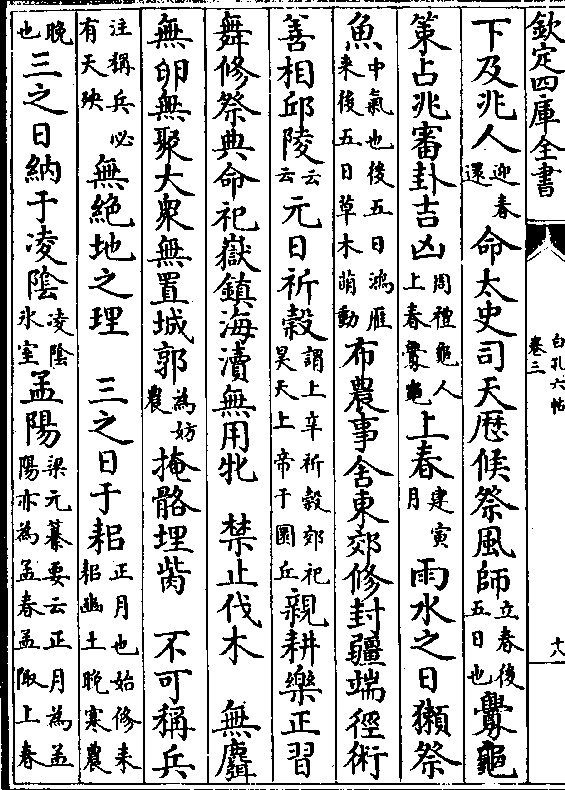 欽定四庫全書 白孔六帖 卷三 十八
下及兆人迎春還 命太史司天歴候祭風師立春後五日也釁龜
策占兆審卦吉凶周禮龜人上春釁龜上春建寅月 雨水之日獺祭
魚中氣也後五日鴻雁來後五日草木萌動布農事舍東郊修封疆端徑術
善相邱陵云云元日祈穀謂上辛祈穀郊祀昊天上帝于圜丘親耕樂正習
舞修祭典命祀嶽鎮海瀆無用牝 禁止伐木 無麛
無卵無聚大衆無置城郭為妨農掩骼埋胔 不可稱兵
注稱兵必有天殃 無絶地之理 三之日于耜正月也始修耒耜豳土晚寒農
晚也三之日納于凌陰凌陰氷室孟陽梁元纂要云正月為孟陽亦為孟春孟陬上春